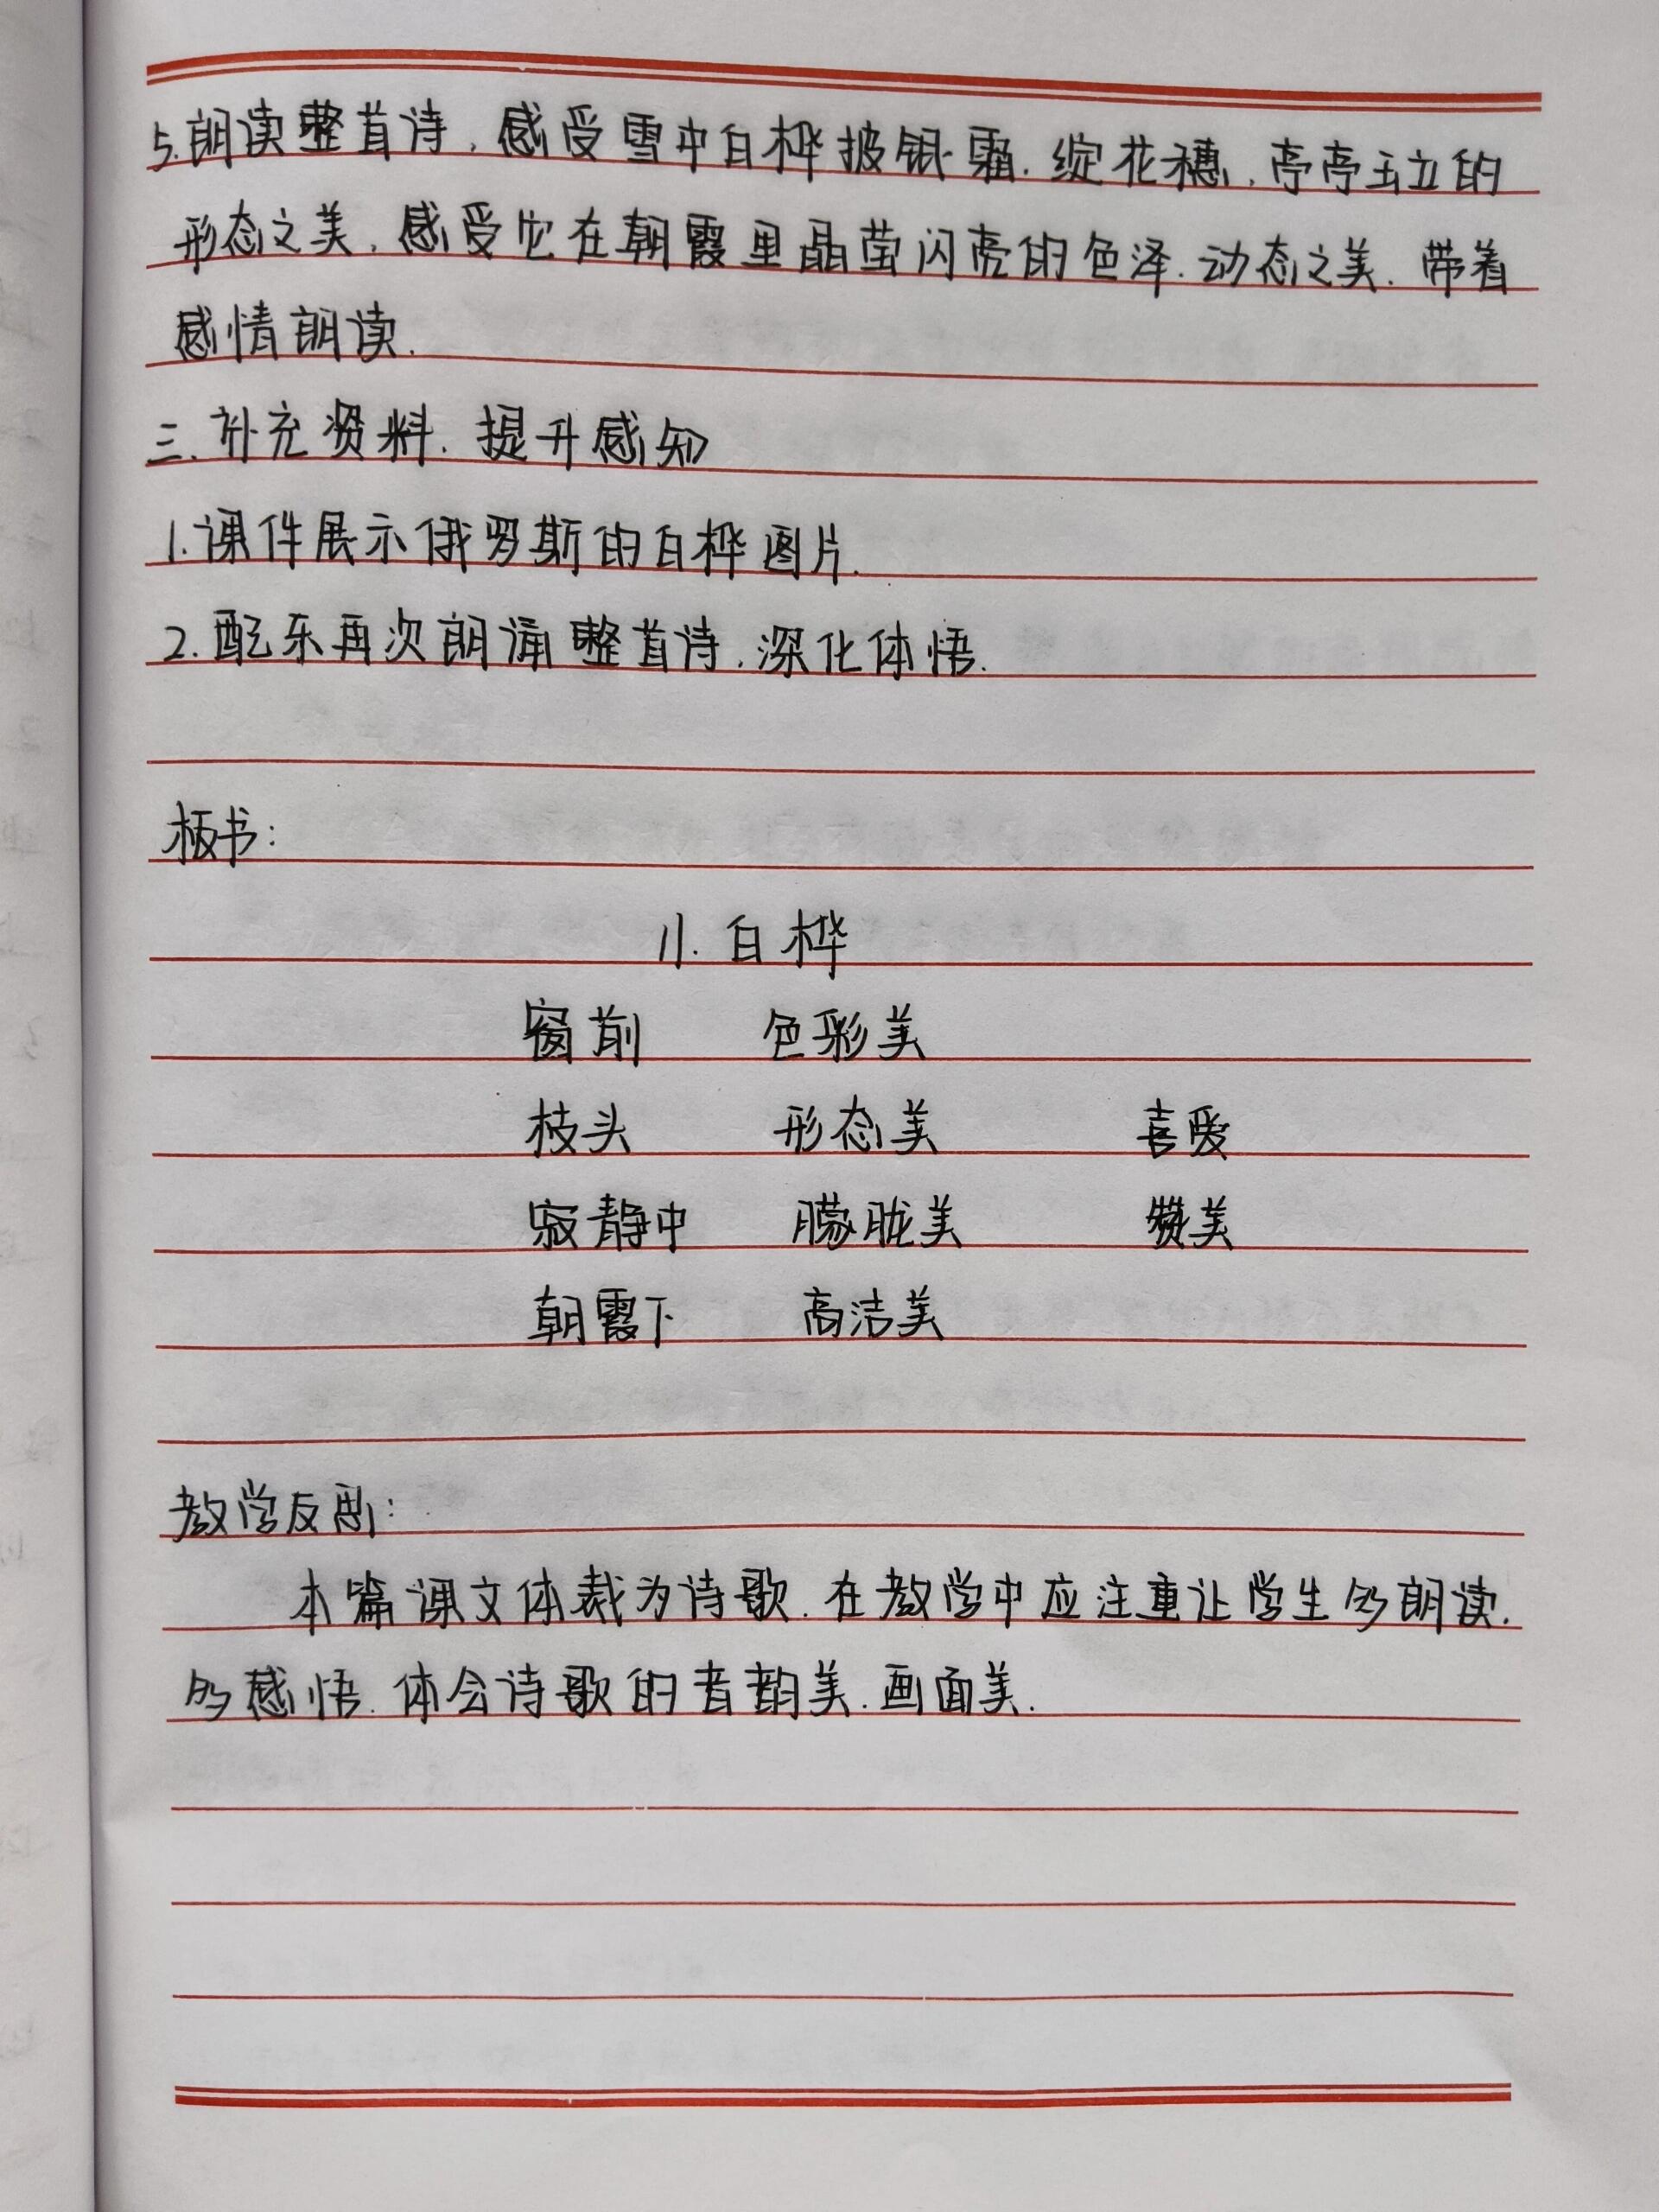 5.朗读整首诗，感受雪中白桦披银霜.绽花穗，亭亭玉立的
形态之美，感受它在朝霞里晶莹闪亮的色泽.动态之美.带着
感情朗读.
三.补充资料.提升感知
1.课件展示俄罗斯的白桦图片.
2.配乐再次朗诵整首诗.深化体悟.
板书：
11.白桦
窗前 色彩美
枝头 形态美 喜爱
寂静中 朦胧美 赞美
朝霞下 高洁美
教学反思：
本篇课文体裁为诗歌.在教学中应注重让学生多朗读.
多感悟.体会诗歌的音韵美.画面美.